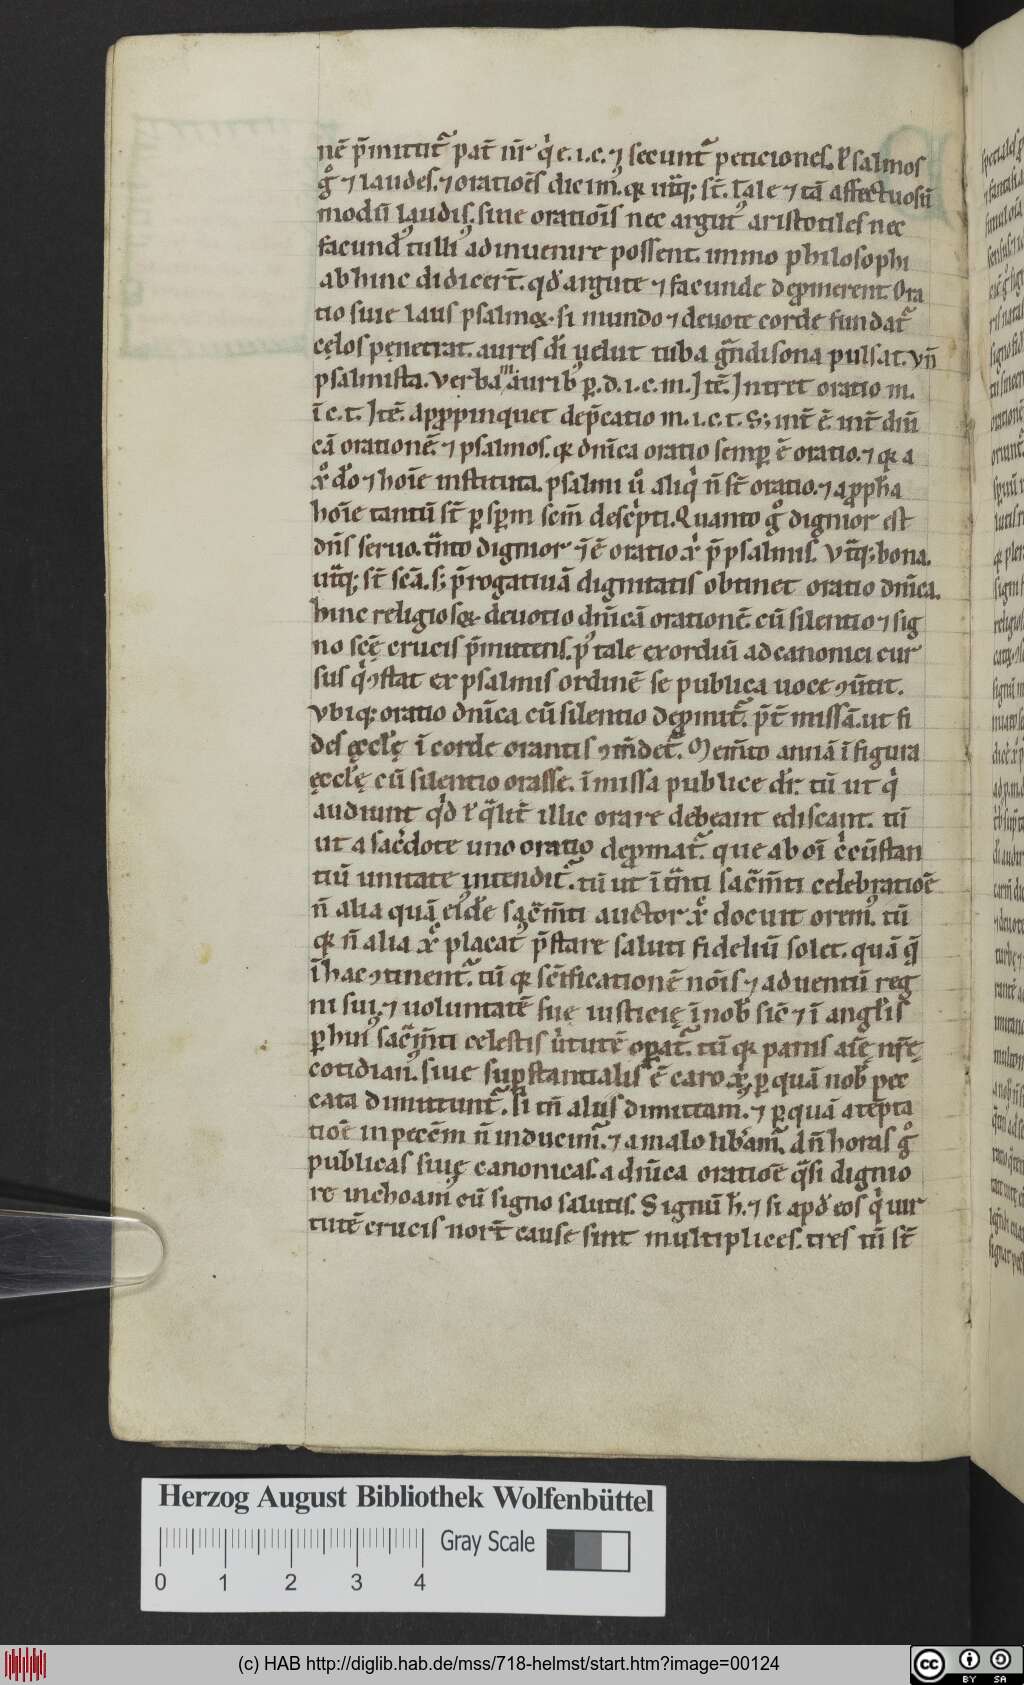 nē p̄mittit᷑ pat̄ nr̄ q̇ e. i. c. ⁊ secunt᷑ peticiones. P̄salmos
g̊ ⁊ laudes. ⁊ oratiōēs dicim᷒. qꝛ ut͛q;  st̄. tale ⁊ tā affectuosū
modū laudis. siue oratiōis nec argut᷒ aristotiles nec
facund᷒ tulli᷒ adinuenire possent. immo philosophi
ab hinc didicer̄t. qđ argute ⁊ facunde dep̱merent Ora
tio siue laus psalmoꝝ. si mundo ⁊ deuote corde fundat᷑
cęlos pęnetrat. aures dī uelut tuba g̃ndisona pulsat. Vn̄
psalmista. Verba m̄ aurib᷒ p̱. d. i. c. m. Itē. Intret oratio m.
ī c. t. Itē. appropinquet dep̄catio m. i. c. t. S; int̄ ē int̄ dn̄i
cā orationē. ⁊ psalmos. qꝛ dn̄ica oratio semp̱ ē oratio. ⁊ qꝛ a
xp̊ dō ⁊ hoīe instituta. psalmi ů aliq̇ n̄ st̄ oratio. ⁊ a ꝓph̄a
hoīe tantū st̄ p̱ sp̄m scm̄ desc̍pti. Quanto g̊ dignior est
dn̄s seruo. t̃nto dignior ⁊ ē oratio xp̍i p̄ psalmis. Vt͛q; bona.
ut͛q; st̄ scā. s; p̄rogatiuā dignitatis obtinet oratio dn̄ica.
hinc religiosoꝝ deuotio dn̄icā orationē cū silentio ⁊ sig
no scę̄ crucis p̄mittens. p᷒ tale exordiū ad canonici cur
sus q̇ ꝯstat ex psalmis ordinē se publica uoce ꝯūtit.
Vbiq; oratio dn̄ica cū silentio dep̱mit᷑. p̄t̄ missā. ut fi
des ęccl̄ę ī corde orantis ꝯm̄det᷑. Memto annā ī figura
ęccl̄ę cū silentio orasse. ī missa publice dr̄. tū ut q̍
audiunt q̍d ł q̃lit̄ illic orare debeant ediscant. tū
ut a sac̍dote uno oratio dep̱mat᷑. que ab oī c̍cūstan
tiū unitate intendit᷑. tū ut ī t̃nti sac̃m̄ti celebratiōē
n̄ alia quā ei᷒de sac̃m̄ti auctor xp̊ docuit orem᷒. tū
qꝛ n̄ alia xp̊ placat᷒ p̄stare saluti fideliū solet. quā q̨̄
ī hac ꝯtinent᷑. tū qꝛ scīficationē nōīs ⁊ aduentū reg
ni sui. ⁊ uoluntatē suę iusticię ī nob̄ sic̄ ⁊ ī angl̍is
p̱ hui᷒ sac̃m̄ti celestis u̍tutē op̱at᷑. tū qꝛ panis aīę nr̄ę
cotidian᷒. siue sup̱stantialis ē caro xp̍i. p̱ quā nob̄ pec
cata dimittunt᷑. si tn̄ aliis dimittam᷒. ⁊ p̱ quā a tēpta
tiōē in pecem n̄ inducim᷒. ⁊ a malo lib̍am᷒. dn̄ horas g̊
publicas siuę canonicas. a dn̄ica oratiōē q̃si dignio
re inchoam᷒ cū signo salutis. Signū h̄. ⁊ si apđ eos q̍ uir
tutē crucis nort̄ cause sint multiplices. tres tn̄ st̄
Herzog August Bibliothek Wolfenbüttel
Gray Scale
0 1 2 3 4
(c) HAB http://diglib.hab.de/mss/718-helmst/start.htm?image=00124
cc BY SA